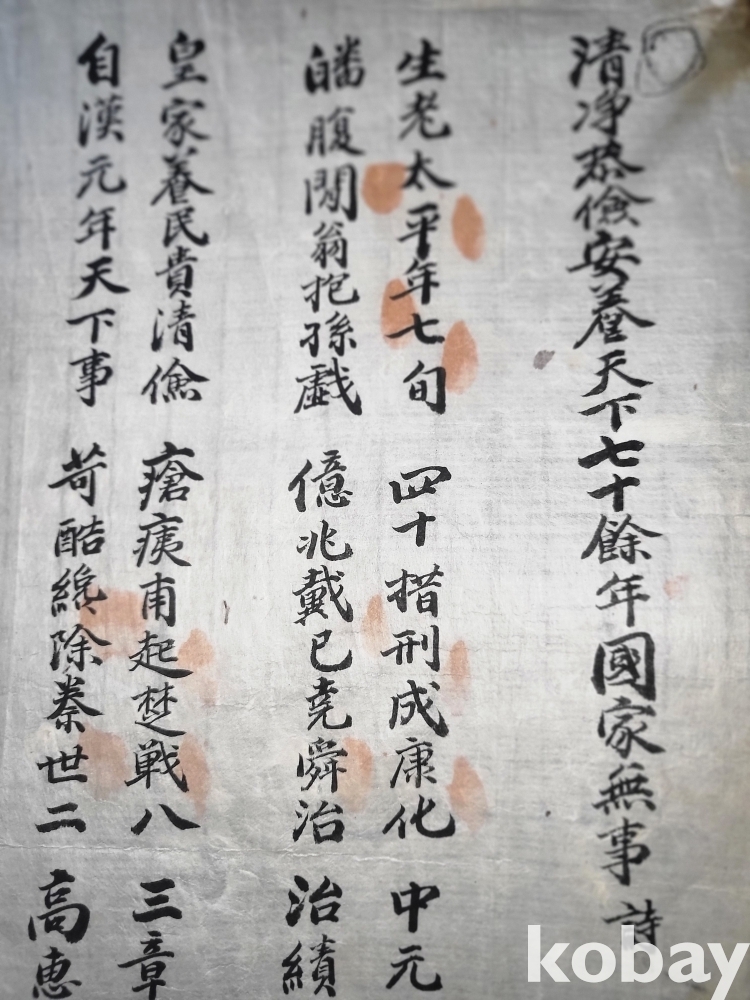 清净恭儉安養天下七十餘年國家無事 詩
生老太平年七旬 四十措刑成康化 中元
皤腹閒翁抱孫戱 億兆戴已堯舜治 治績
皇家養民貴清儉 瘡痍甫起楚戰八 三章
自漢元年天下事 苛酷纔除秦世二 高惠
kobay